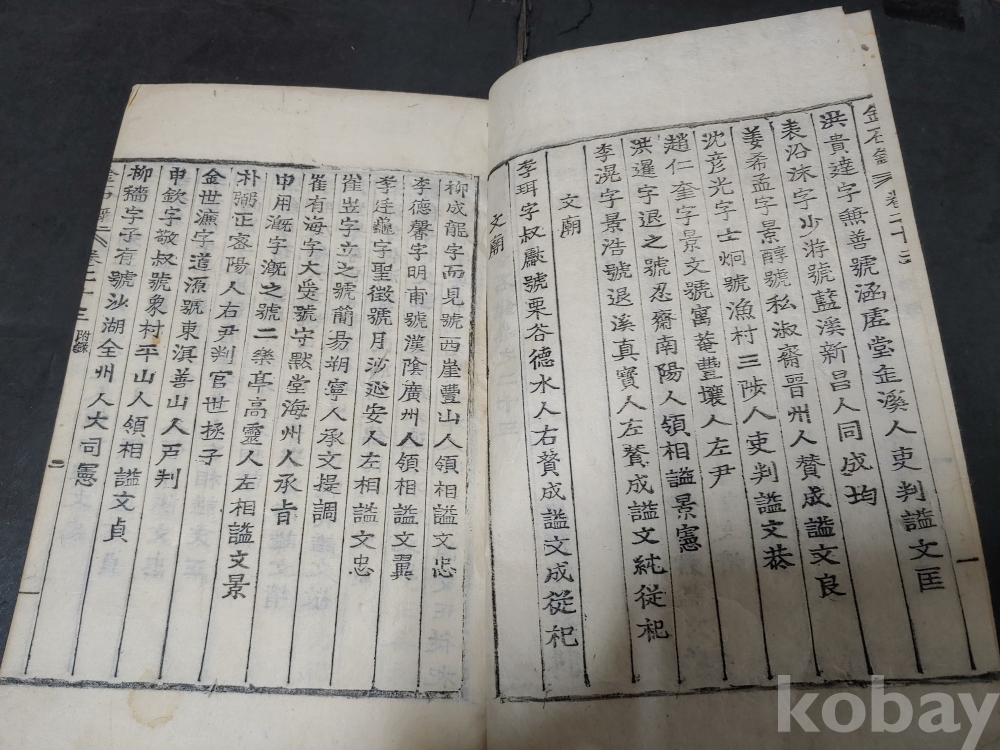 洪貴達字兼善號涵虛堂缶溪人吏判謚文匡
表沿沫字少游號藍溪新昌人同成均
姜希孟字景醇號私淑齋晉州人贊成謚文良
沈彦光字士炯號漁村三陟人吏判謚文恭
趙仁奎字景文號寓菴豐壤人左尹
洪暹字退之號忍齋南陽人領相謚景憲
李滉字景浩號退溪真寶人左贊成謚文純從祀
文廟
李珥字叔獻號栗谷德水人右贊成謚文成從祀
文廟
柳成龍字而見號西崖豐山人領相謚文忠
李德馨字明甫號漢陰廣州人領相謚文翼
李廷龜字聖徵號月沙延安人左相謚文忠
崔岦字立之號簡易朔寧人承文提調
崔有海字大受號守默堂海州人承旨
申用漑字漑之號二樂亭高靈人左相謚文景
朴弼正密陽人右尹判官世拯子
金世濂字道源號東溟善山人戶判
申欽字敬叔號象村平山人領相謚文貞
柳穡字子有號沙湖全州人大司憲
附錄
二
一
kobay